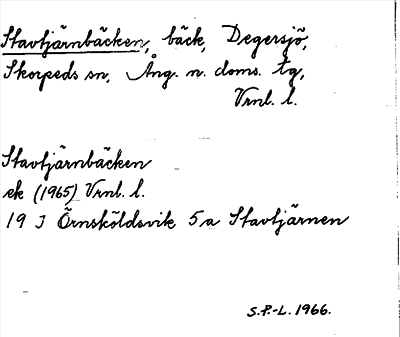 Stavtjärnbäcken, bäck, Degersjö,
Skorpeds sn, Ång. n. doms. tg,
Vrnl. l.
Stavtjärnbäcken
ek (1965) Vrnl. l.
19 J Örnsköldsvik 5a Stavtjärnen
S.P.-L. 1966.